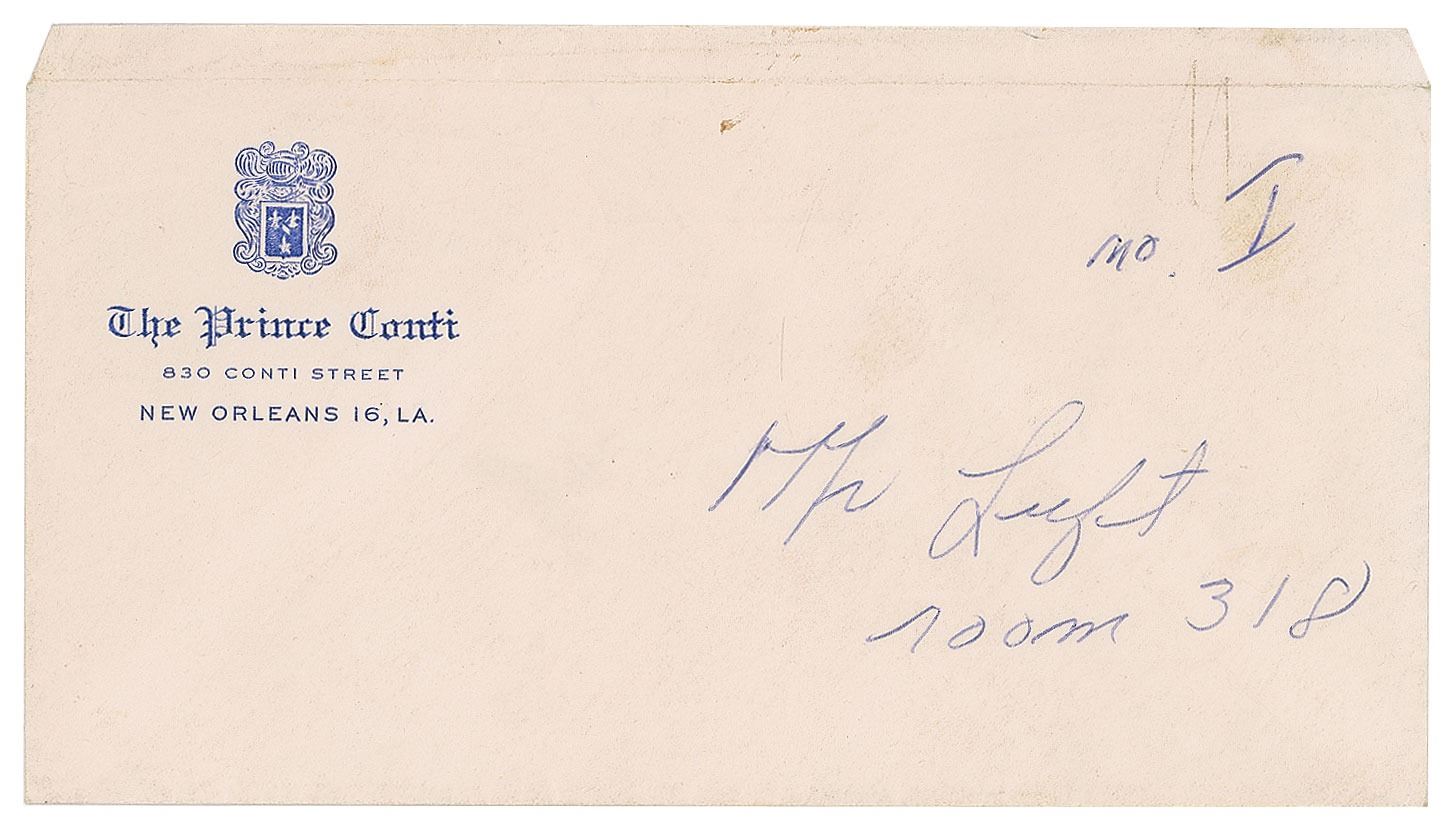 The Prince Conti
830 CONTI STREET
NEW ORLEANS 16, LA.
no. I
Mr Luft
room 318